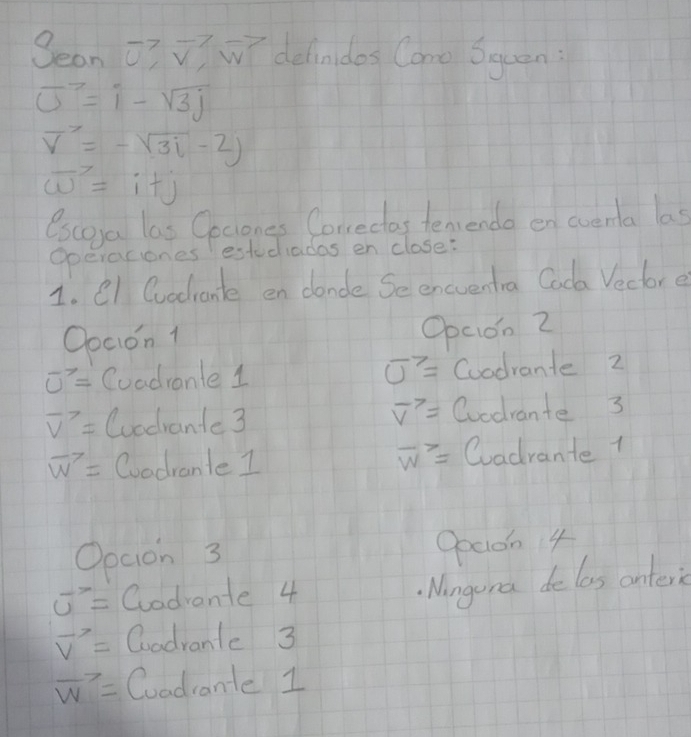 Sean U⃗, V⃗, W⃗ definidos Como Siguen:
U⃗ = i - √3j
V⃗ = -√3i - 2j
W⃗ = i+j
Escoja las Opciones Correctas teniendo en cuenta las
operaciones estudiadas en clase:
1. El Cuadrante en donde Se encuentra Cada Vector e
Opción 1
U⃗ = Cuadrante 1
V⃗ = Cuadrante 3
W⃗ = Cuadrante 1
Opción 2
U⃗ = Cuadrante 2
V⃗ = Cuadrante 3
W⃗ = Cuadrante 1
Opción 3
U⃗ = Cuadrante 4
V⃗ = Cuadrante 3
W⃗ = Cuadrante 1
Opción 4
. Ninguna de las anteric